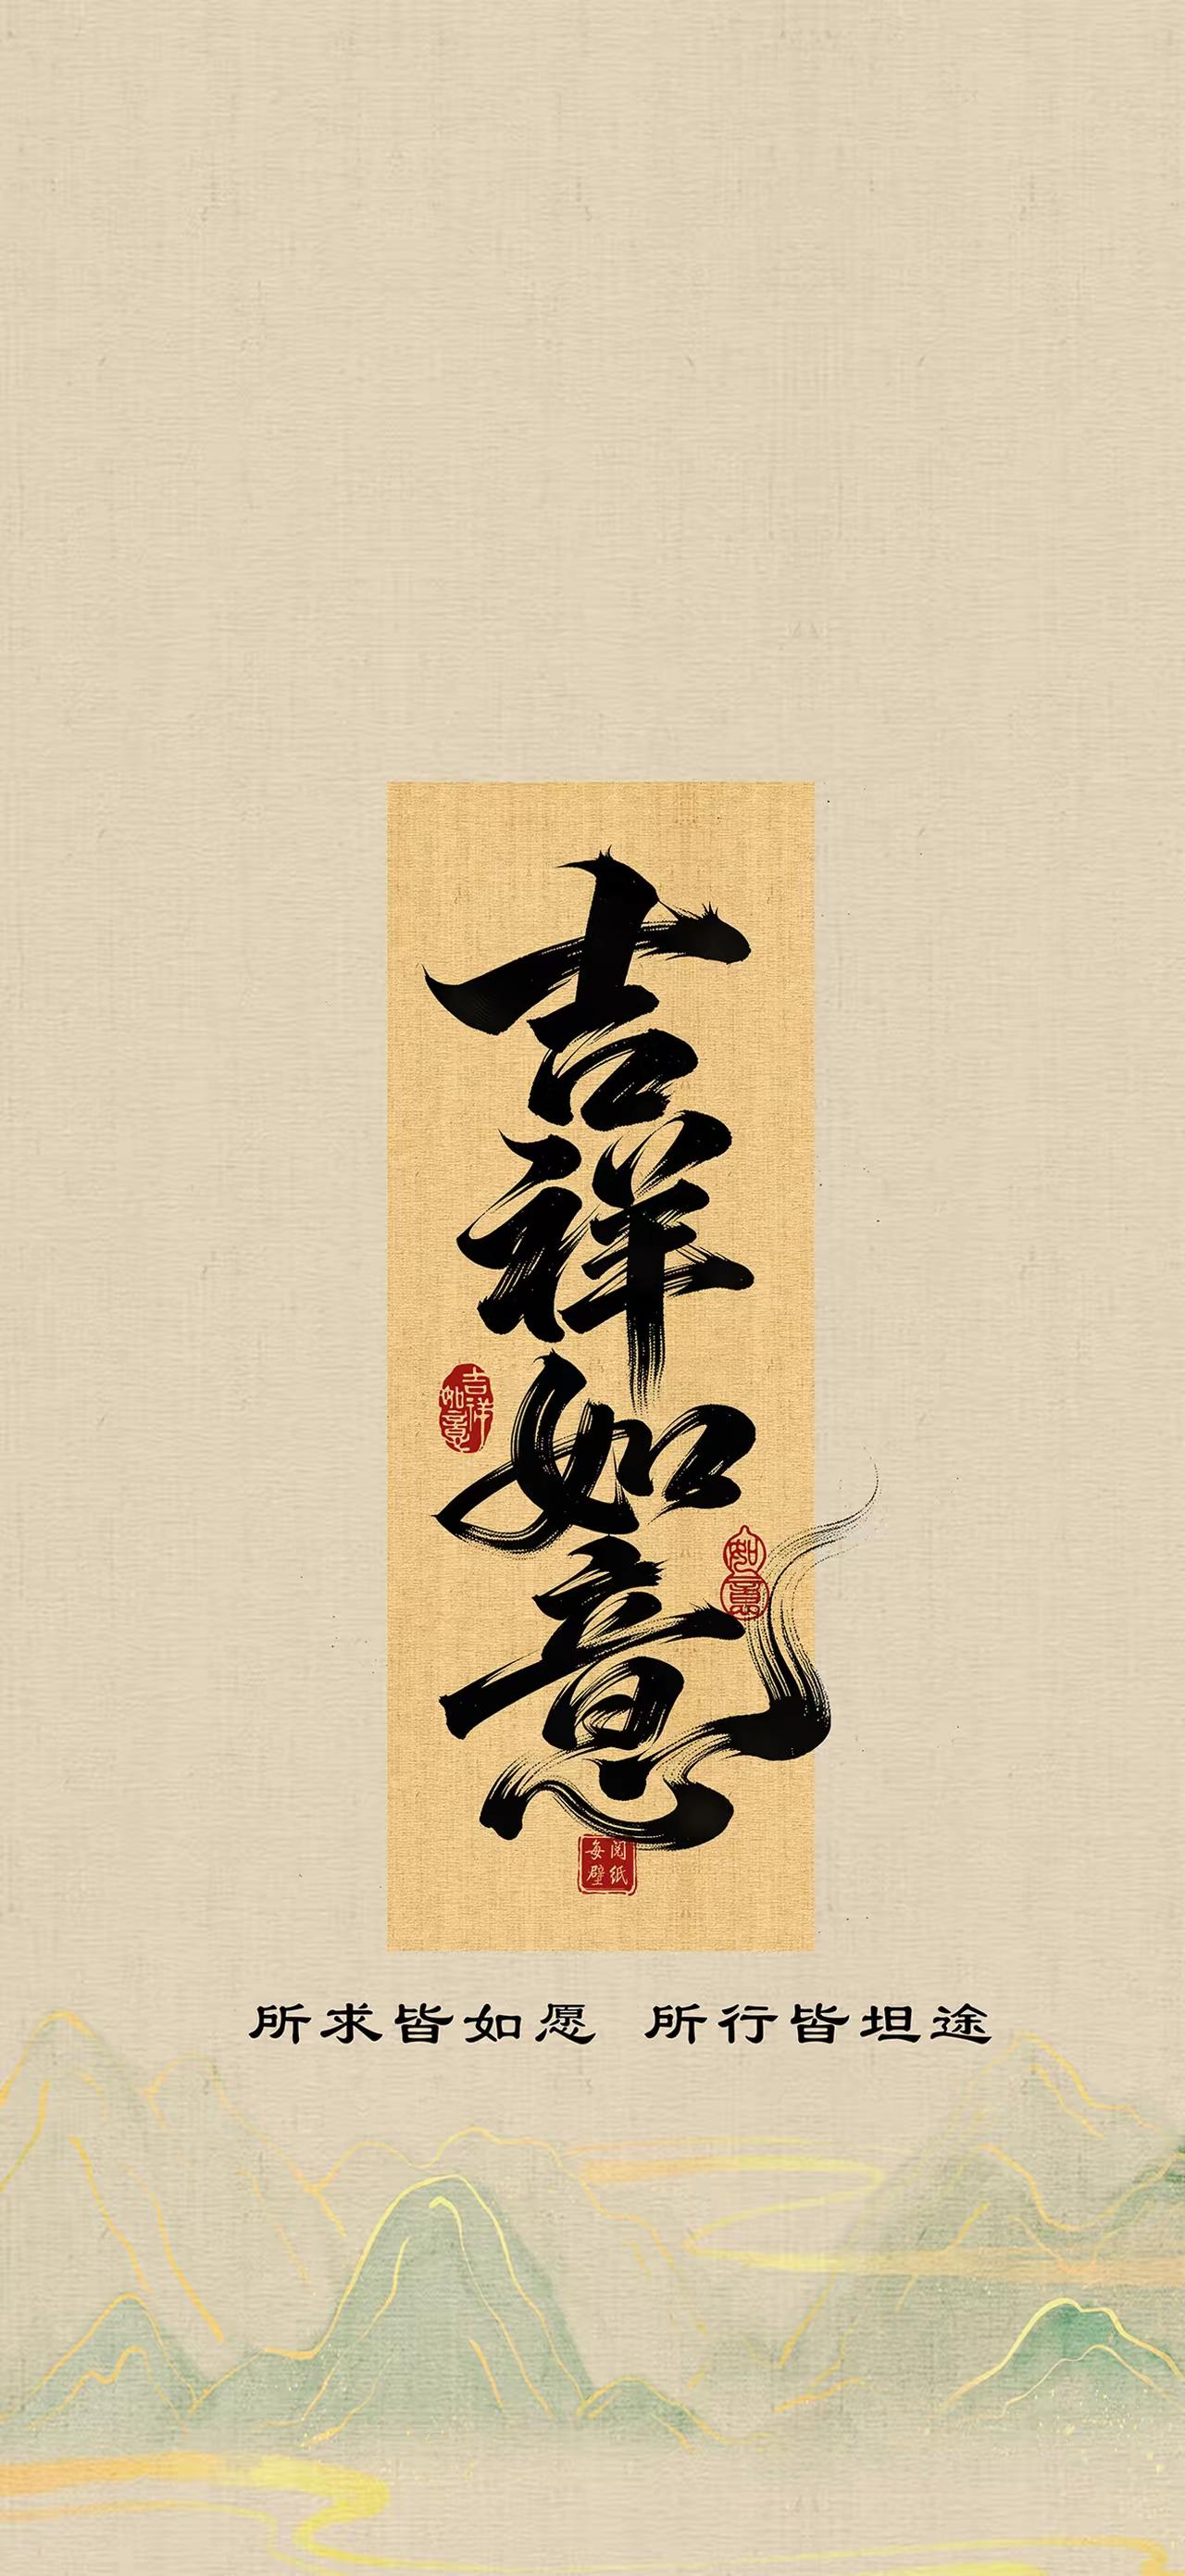 吉祥如意
吉祥如意
如意
每阅壁纸
所求皆如愿 所行皆坦途